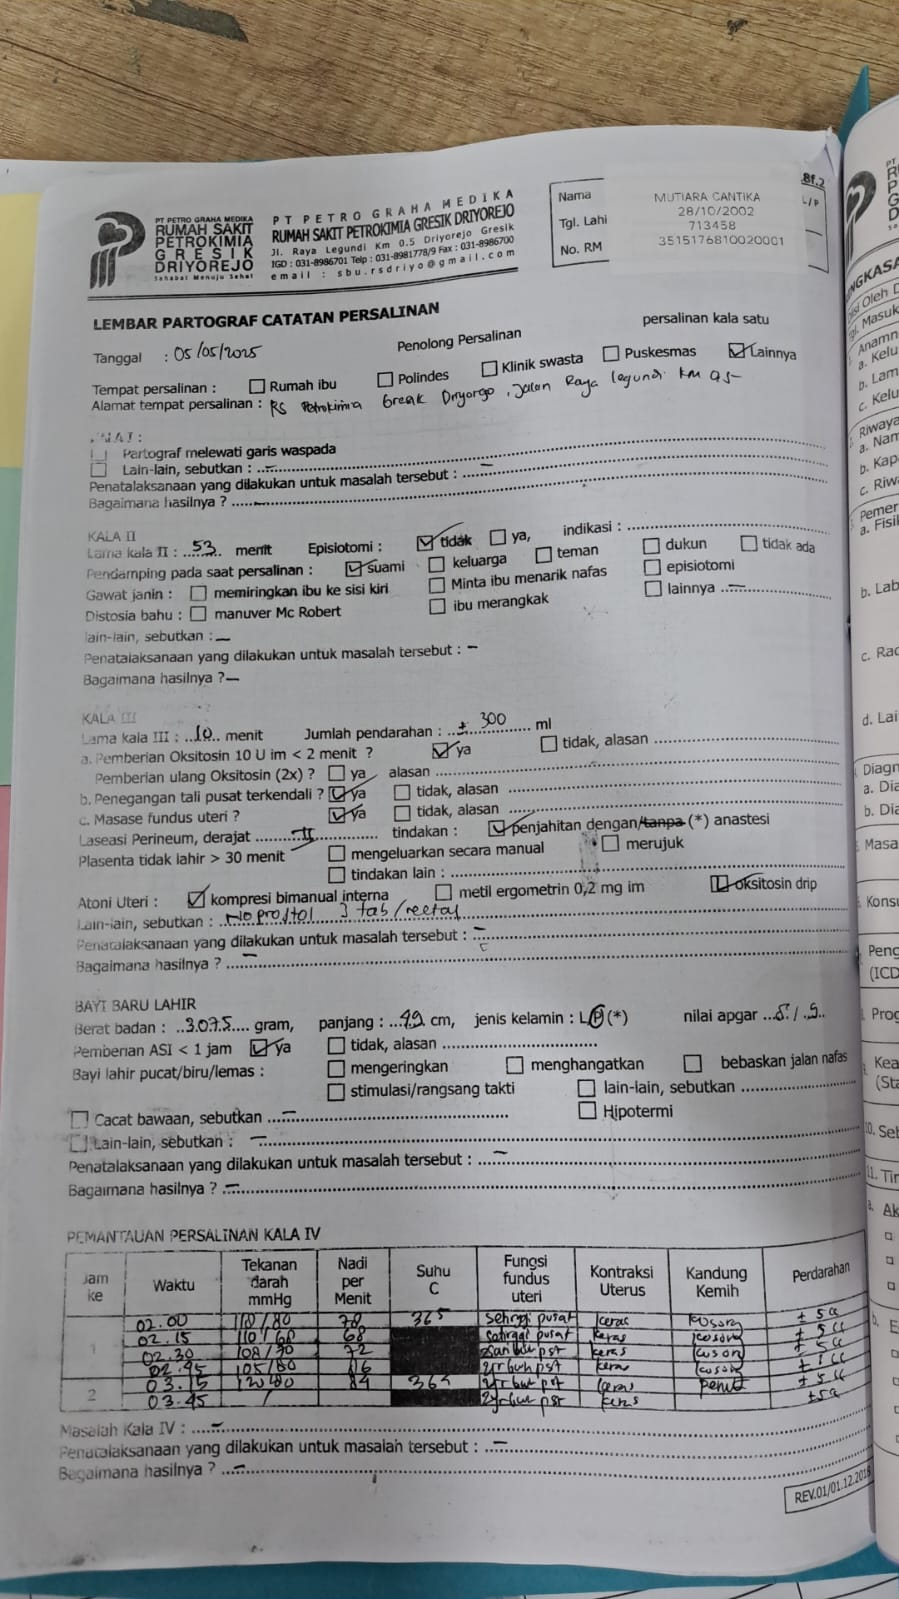 8f.2
PT PETRO GRAHA MEDIKA
RUMAH SAKIT
PETROKIMIA
GRESIK
DRIYOREJO
Sahabat Menuju Sehat
PT PETRO GRAHA MEDIKA
RUMAH SAKIT PETROKIMIA GRESIK DRIYOREJO
Jl. Raya Legundi Km 0.5 Driyorejo Gresik
IGD : 031-8986701 Telp : 031-8981778/9 Fax : 031-8986700
email : sbu.rsdriyo@gmail.com
Nama MUTIARA CANTIKA L/P
28/10/2002
Tgl. Lahi 713458
No. RM 3515176810020001
LEMBAR PARTOGRAF CATATAN PERSALINAN
Tanggal : 05/05/2025 Penolong Persalinan persalinan kala satu
Tempat persalinan : Rumah ibu Polindes Klinik swasta Puskesmas Lainnya
Alamat tempat persalinan : RS Petrokimia Gresik Driyorejo, Jalan Raya legundi KM 0,5
Partograf melewati garis waspada
Lain-lain, sebutkan : –
Penatalaksanaan yang dilakukan untuk masalah tersebut : –
Bagaimana hasilnya ? –
KALA II
Lama kala II : 53 menit Episiotomi : tidak ya, indikasi :
Pendamping pada saat persalinan : suami keluarga teman dukun tidak ada
Gawat janin : memiringkan ibu ke sisi kiri Minta ibu menarik nafas episiotomi
Distosia bahu : manuver Mc Robert ibu merangkak lainnya –
lain-lain, sebutkan : –
Penatalaksanaan yang dilakukan untuk masalah tersebut : –
Bagaimana hasilnya ? –
KALA III
Lama kala III : 10 menit Jumlah pendarahan : ± 300 ml
a. Pemberian Oksitosin 10 U im < 2 menit ? ya tidak, alasan
Pemberian ulang Oksitosin (2x) ? ya alasan
b. Penegangan tali pusat terkendali ? ya tidak, alasan
c. Masase fundus uteri ? ya tidak, alasan
Laseasi Perineum, derajat II tindakan : penjahitan dengan/tanpa (*) anastesi
Plasenta tidak lahir > 30 menit mengeluarkan secara manual merujuk
tindakan lain :
Atoni Uteri : kompresi bimanual interna metil ergometrin 0,2 mg im oksitosin drip
Lain-lain, sebutkan : Noprostol 3 tab/rectal
Penatalaksanaan yang dilakukan untuk masalah tersebut : –
Bagaimana hasilnya ? –
BAYI BARU LAHIR
Berat badan : 3.075 gram, panjang : 49 cm, jenis kelamin : L/P (*) nilai apgar 8 / 9
Pemberian ASI < 1 jam ya tidak, alasan
Bayi lahir pucat/biru/lemas : mengeringkan menghangatkan bebaskan jalan nafas
stimulasi/rangsang takti lain-lain, sebutkan
Cacat bawaan, sebutkan – Hipotermi
Lain-lain, sebutkan : –
Penatalaksanaan yang dilakukan untuk masalah tersebut : –
Bagaimana hasilnya ? –
PEMANTAUAN PERSALINAN KALA IV
Jam ke Waktu Tekanan darah mmHg Nadi per Menit Suhu C Fungsi fundus uteri Kontraksi Uterus Kandung Kemih Perdarahan
1 02.00 110/80 78 365 Sehrggi pusat keras kosong ± 5 cc
02.15 110/68 68 pusat keras kosong ± 5 cc
02.30 108/70 72 keras kosong ± 5 cc
02.45 105/80 keras kosong
2 03.15 84 365 keras penuh ± 5 cc
03.45 / keras ± 5 cc
Masalah Kala IV : –
Penatalaksanaan yang dilakukan untuk masalah tersebut : –
Bagaimana hasilnya ? –
REV.01/01.12.2018